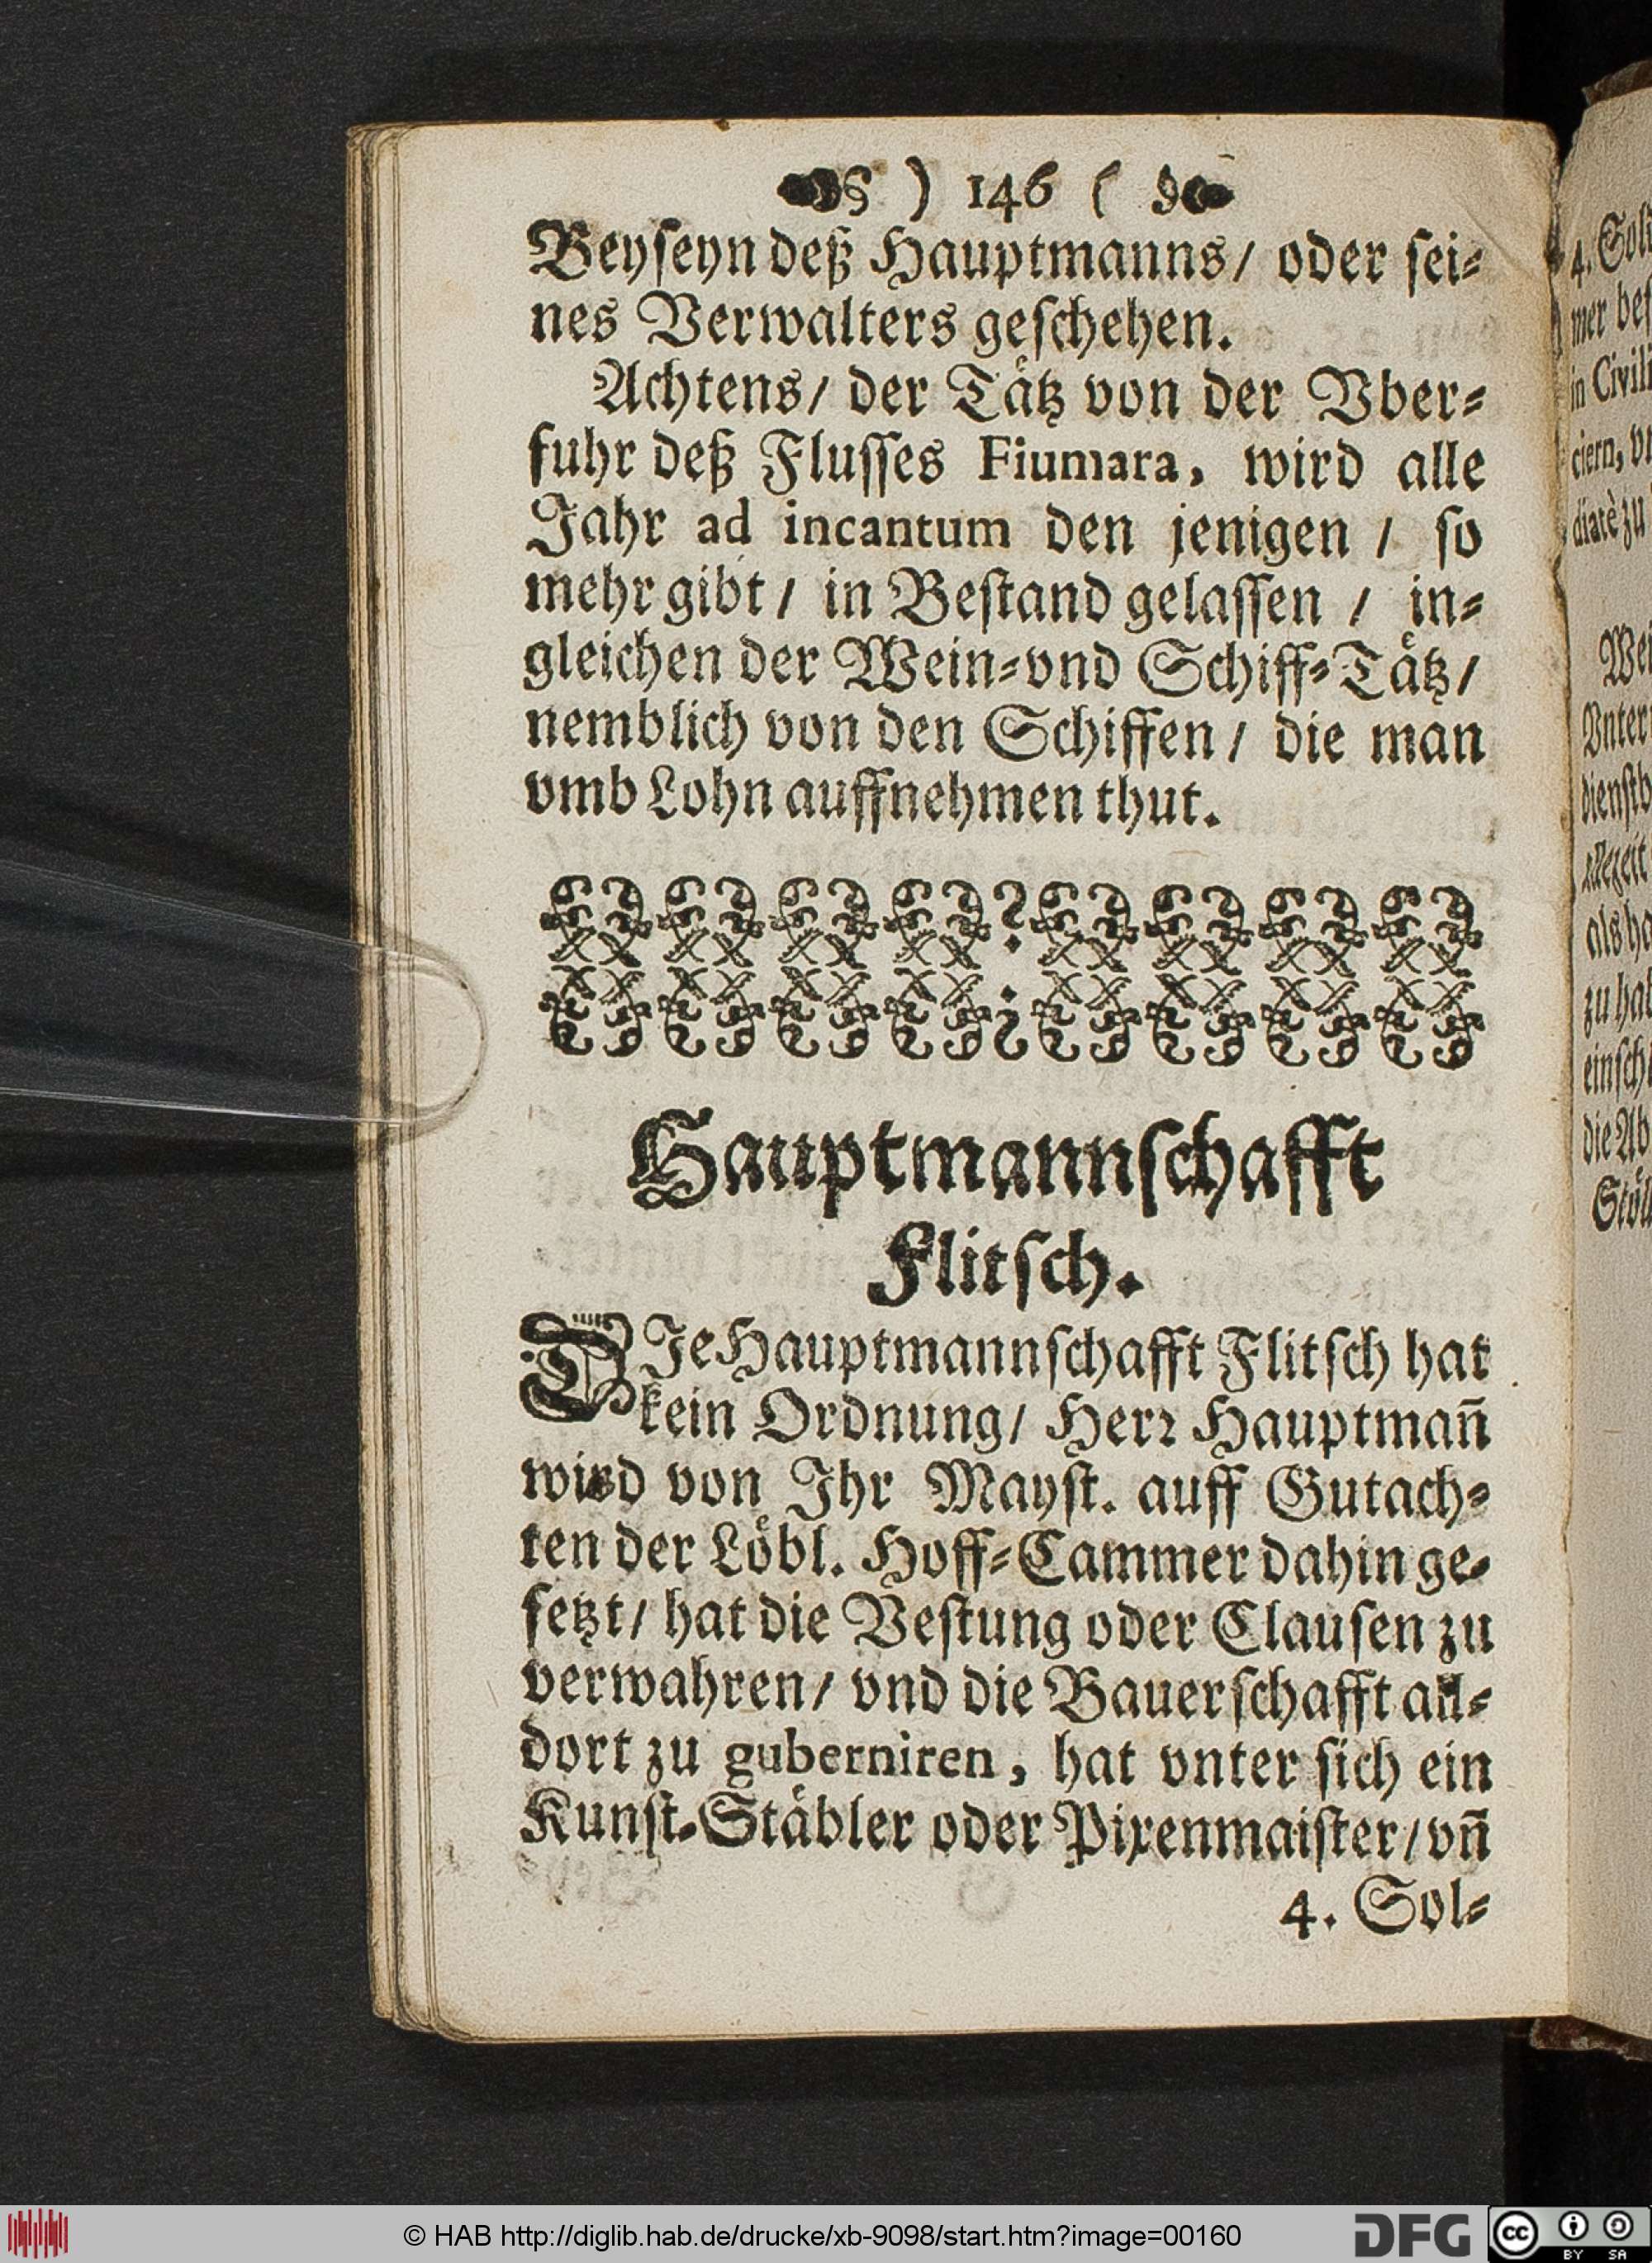 ) 146 (
Beyſeyn deß Hauptmanns/ oder ſei⸗
nes Verwalters geſchehen.
Achtens/ der Taͤtz von der Vber⸗
fuhr deß Fluſſes Fiumara, wird alle
Jahr ad incantum den jenigen / ſo
mehr gibt / in Beſtand gelaſſen / in⸗
gleichen der Wein⸗vnd Schiff⸗Taͤtz/
nemblich von den Schiffen / die man
vmb Lohn auffnehmen thut.
Hauptmannſchafft
Flitſch.
DIe Hauptmannſchafft Flitſch hat
kein Ordnung/ Herꝛ Hauptman̄
wird von Ihr Mayſt. auff Gutach⸗
ten der Loͤbl. Hoff⸗Cammer dahin ge⸗
ſetzt/ hat die Veſtung oder Clauſen zu
verwahren/ vnd die Bauerſchafft all⸗
dort zu guberniren, hat vnter ſich ein
Kunſt⸗Staͤbler oder Pixenmaiſter/ vn̄
4. Sol⸗
in Civili
diatè zu
© HAB http://diglib.hab.de/drucke/xb-9098/start.htm?image=00160
DFG
cc
BY SA